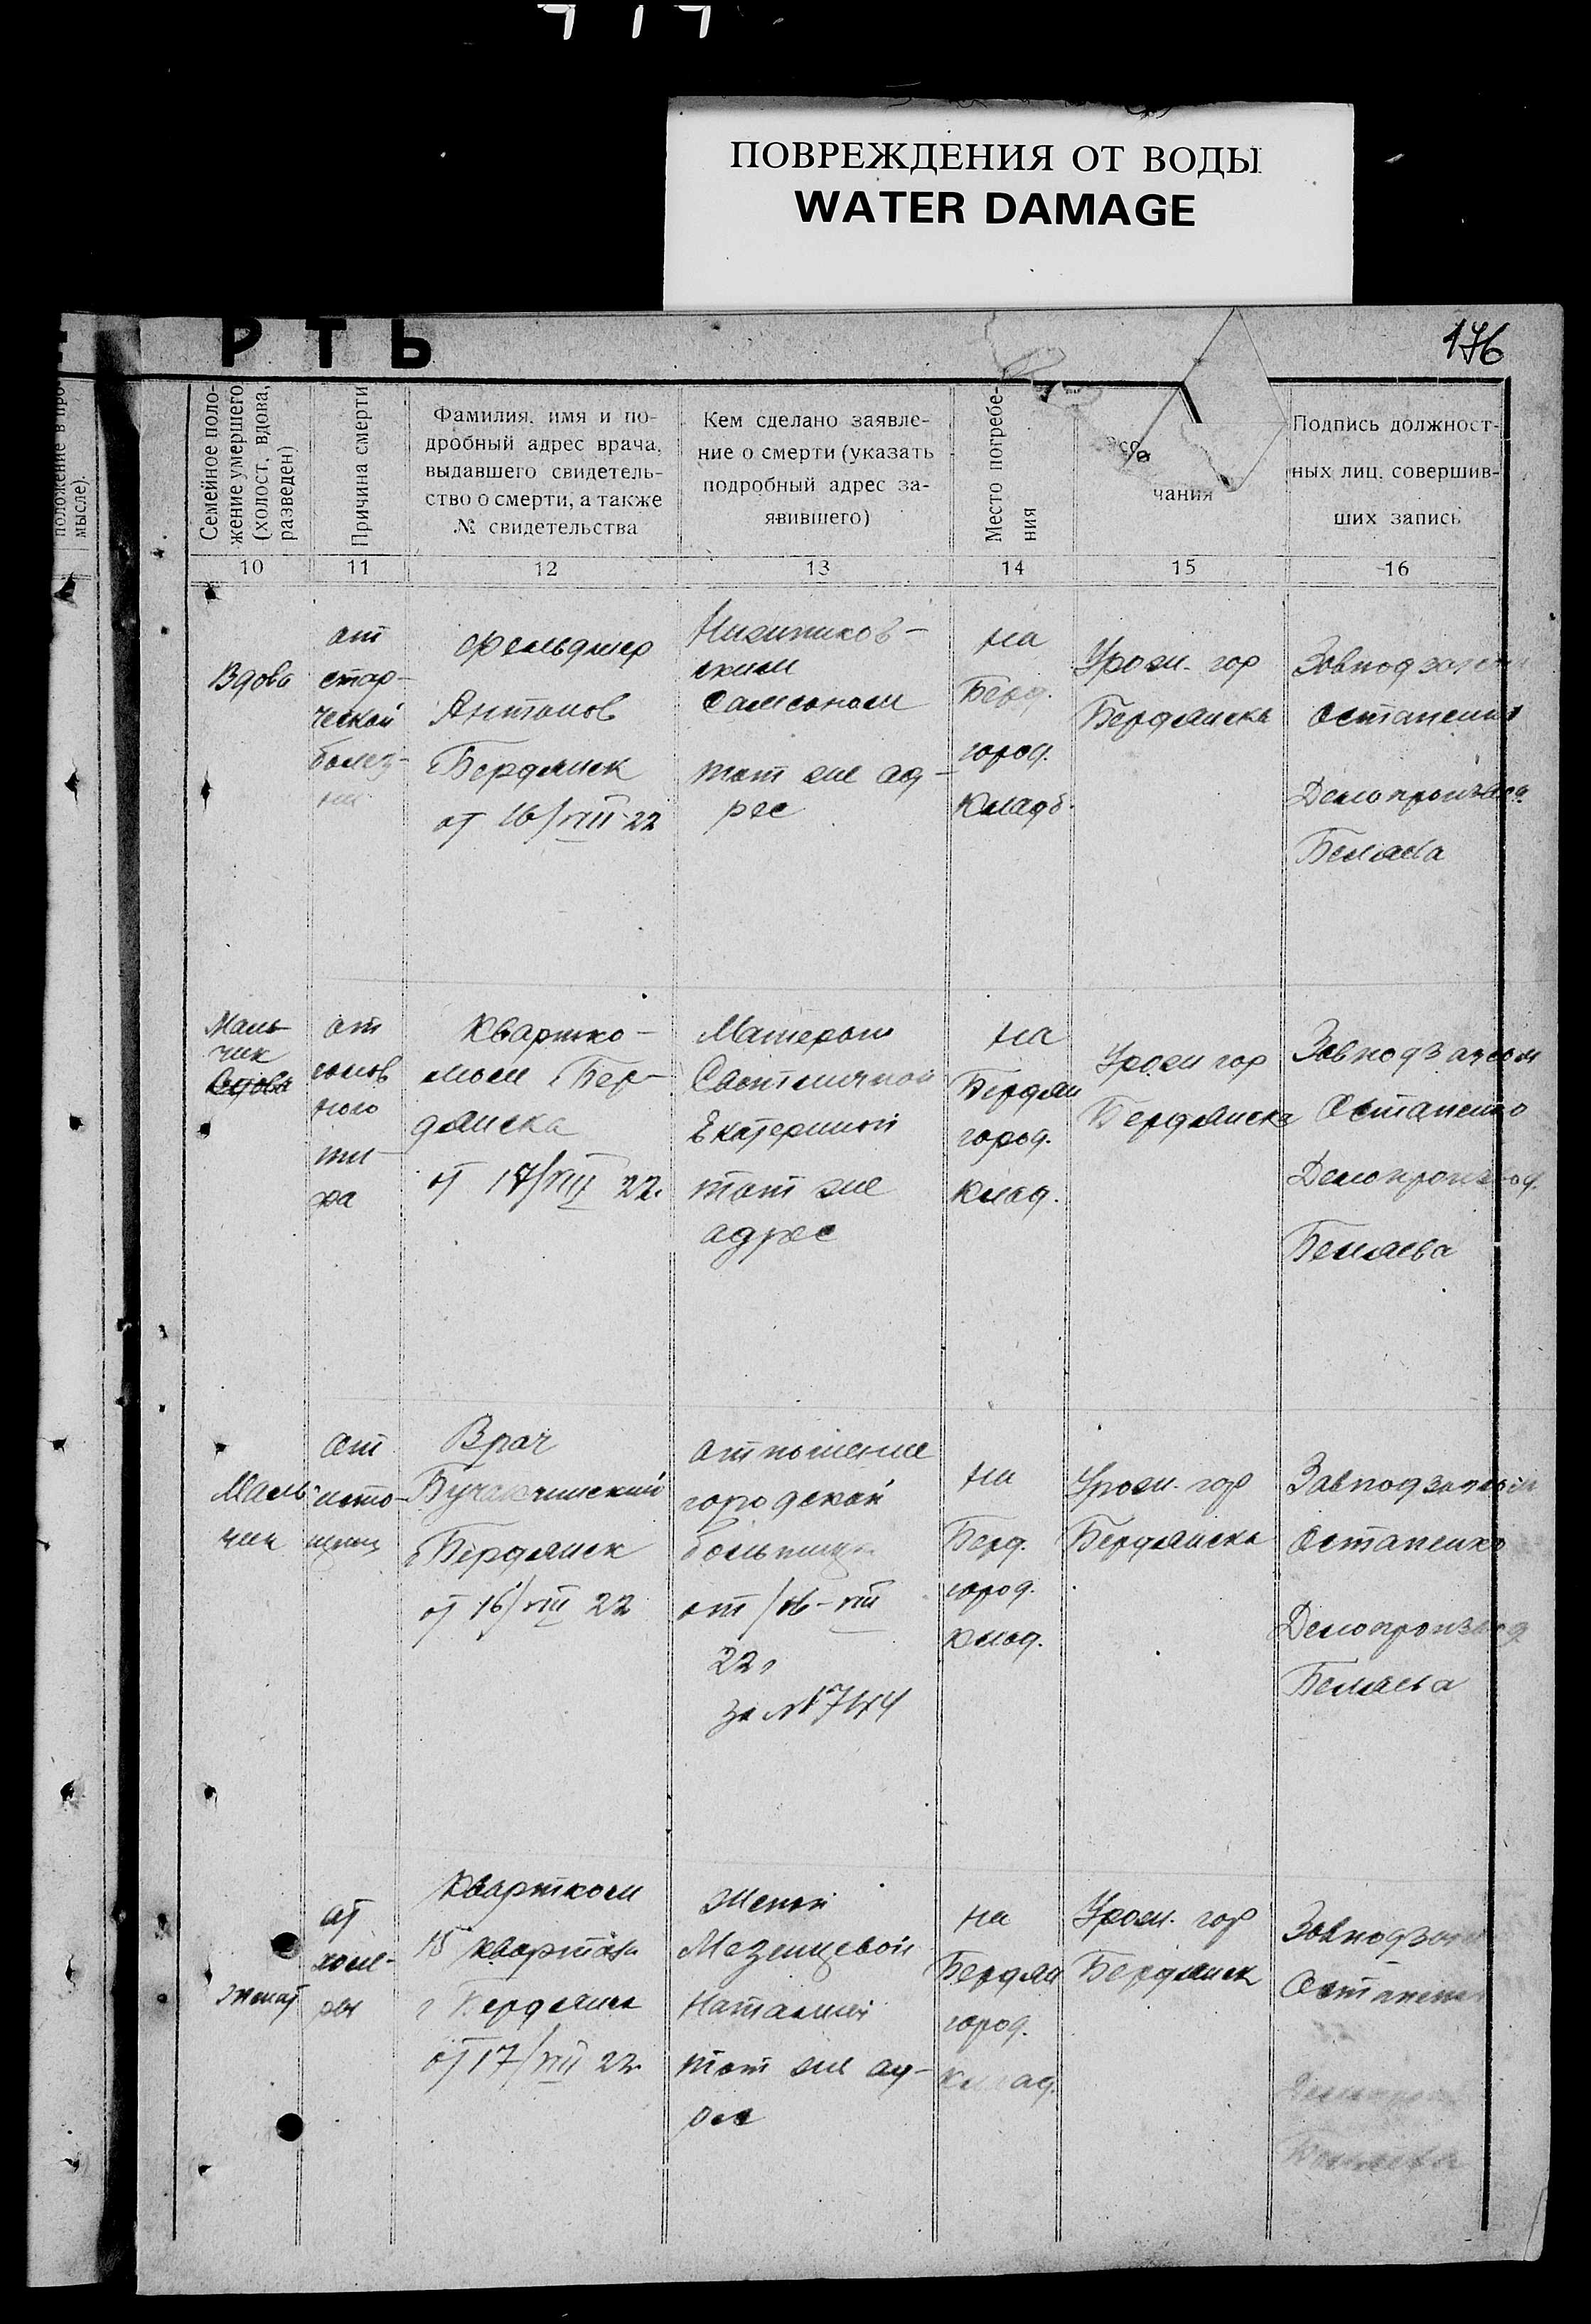 ПОВРЕЖДЕНИЯ ОТ ВОДЫ
WATER DAMAGE
РТЬ
176
положение в про-
мысле).
Семейное поло-
жение умершего
(холост, вдова,
разведен)
Причина смерти
Фамилия, имя и по-
дробный адрес врача,
выдавшего свидетель-
ство о смерти, а также
№ свидетельства
Кем сделано заявле-
ние о смерти (указать
подробный адрес за-
явившего)
Место погребе-
ния
чания
Подпись должност-
ных лиц, совершив-
ших запись
10
11
12
13
14
15
16
Вдова
от
стар-
ческой
болез-
ни
Фельдшер
Антонов
Бердянск
от 16/VIII-22
Самсоном
тот же ад-
рес
на
Берд.
город.
Кладб.
Урож. гор
Бердянска
Завподзагсом
Остапенко
Делопроизвод.
Беляева
Маль
чик
от
ти-
фа
Квартко-
мом Бер-
дянска
от 17/VIII 22.
Матерью
Екатериной
тот же
адрес
на
Бердян
город.
Клад.
Урож гор
Бердянска
Завподзагсом
Остапенко
Делопроизвод.
Беляева
Маль-
чик
от
исто-
щен
Врач
Бердянск
от 16/VIII 22
отношение
городской
больницы
от 16-VIII
22 г
за №1744
на
Берд.
город.
Клад.
Урож. гор
Бердянска
Завподзагсом
Остапенко
Делопроизвод
Беляева
женат
от
холе-
ры
Квартком
15 квартала
г Бердянск
от 17/VIII 22.
Женой
Мезенцевой
Наталией
тот же ад-
рес
на
Бердян
город.
Клад.
Урож. гор
Бердянск
Завподзагсом
Остапенко
Беляева